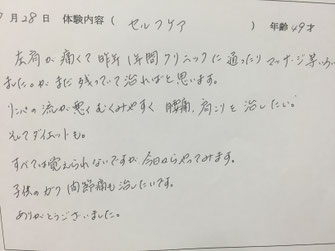 月28日 体験内容( セルフケア ) 年齢49才
左肩が痛くて昨年1年間クリニックに通ったりマッサージ
ました。がまだ残っていて治ればと思います。
リンパの流が悪くむくみやすく 腰痛、肩こりを治したい。
そしてダイエットも。
すべては覚えられないですが今日からやってみます。
子供のガク関節痛も治したいです。
ありがとうございました。